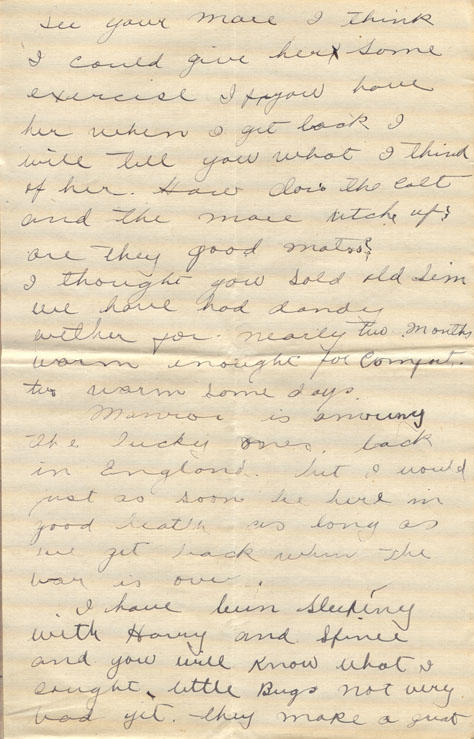 see your mare I think
I could give her some
exercise I if you have
her when I get back I
will tell you what I think
of her. How does the Colt
and the mare hitch up;
are they good mates?
I thought you sold old Jim
we have had dandy
wether for nearly two months
warm enought for Comfort.
two warm some days.
Monroe is amoung
the lucky ones. back
in England. but I would
just as soon be here in
good health as long as
we get back when the
war is over.
I have been sleeping
with Harry and
and you will know what I
caught, little Bugs not very
bad yet. they make a great